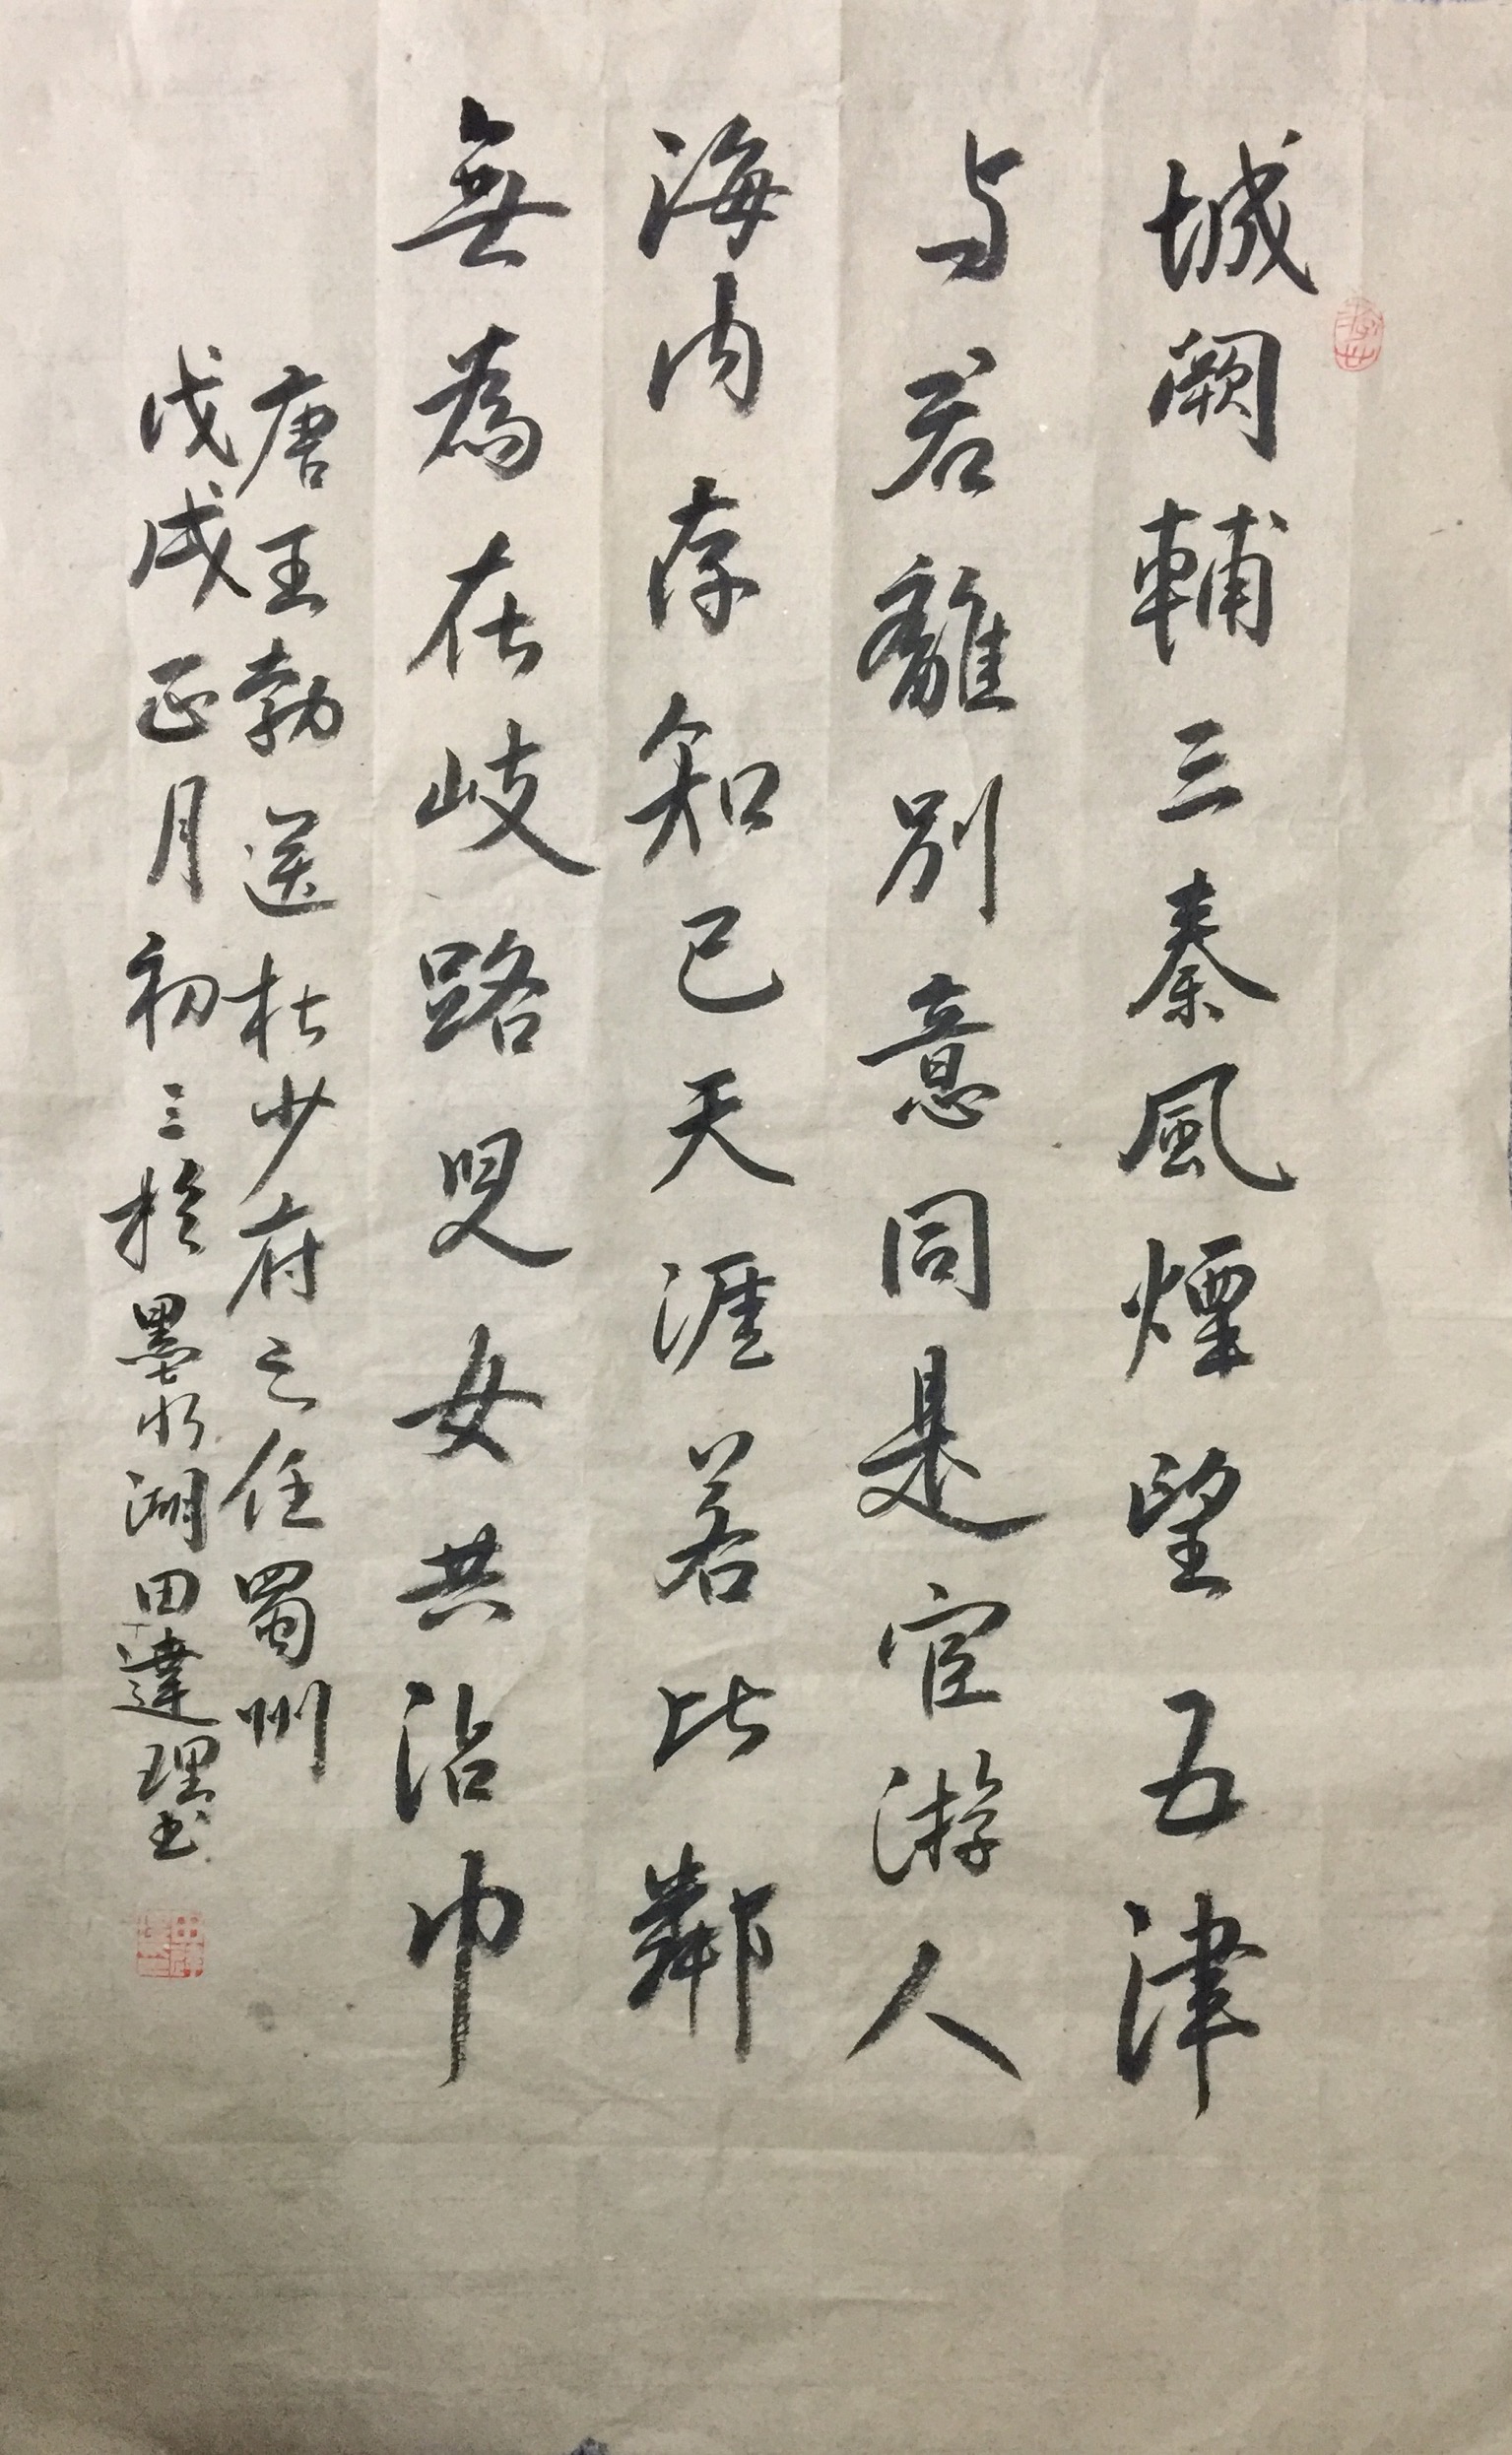 城闕輔三秦風煙望五津
与君離別意同是宦游人
海内存知己天涯若比鄰
無為在歧路児女共沾巾
唐王勃送杜少府之任蜀州
戊戌正月初三於墨水湖田達理书